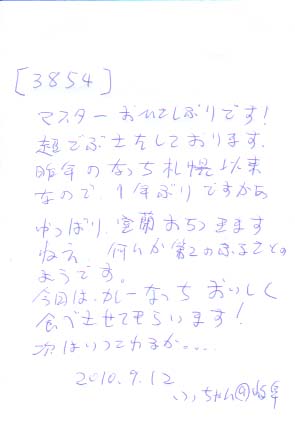 [3854]
マスターおひさしぶりです!
超でぶさたをしております。
昨年のなっち札幌以来
なので、1年ぶりですがぁ
やっぱり、室蘭おちつきます
ねぇ 何んか第2のふるさとの
ようです。
今回は、カレーなっち おいしく
食べさせてもらいます!
次はいつこれるか...
2010.9.12
いっちゃん@岐阜